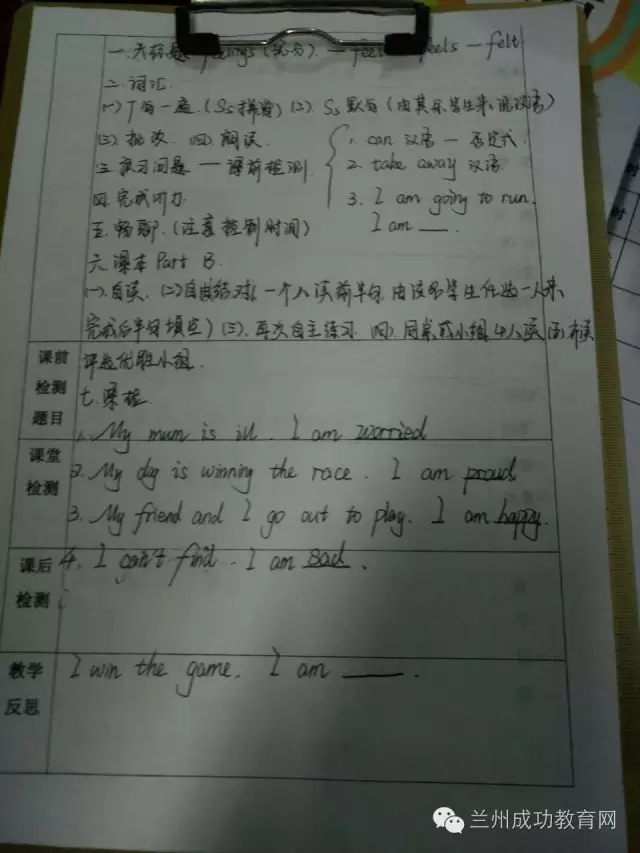 feel — feels — felt
二.词汇.
(一)T每一遍.(Ss拼读)(二). Ss默每(由其余学生来说汉语)
(三)批改. (四)朗读. 1. can 汉语 — 否定式.
三.复习问题 — 课前检测. 2. take away 汉语.
四.完成听力. 3. I am going to run.
五.畅聊.(注意控制时间) I am __.
六.课本 Part B
(一).自读.(二)自由结对(一个人读前半句,由该名学生任选一人来
完成后半句填空)(三).再次自主练习 (四).同桌或小组4人读
课前
检测
题目
评选优胜小组.
七.课检.
1. My mum is ill. I am worried
课堂
检测
2. My dog is winning the race. I am proud.
3. My friend and I go out to play. I am happy.
课后
检测
4. I can't find. I am sad.
教学
反思
I win the game. I am ____.
兰州成功教育网